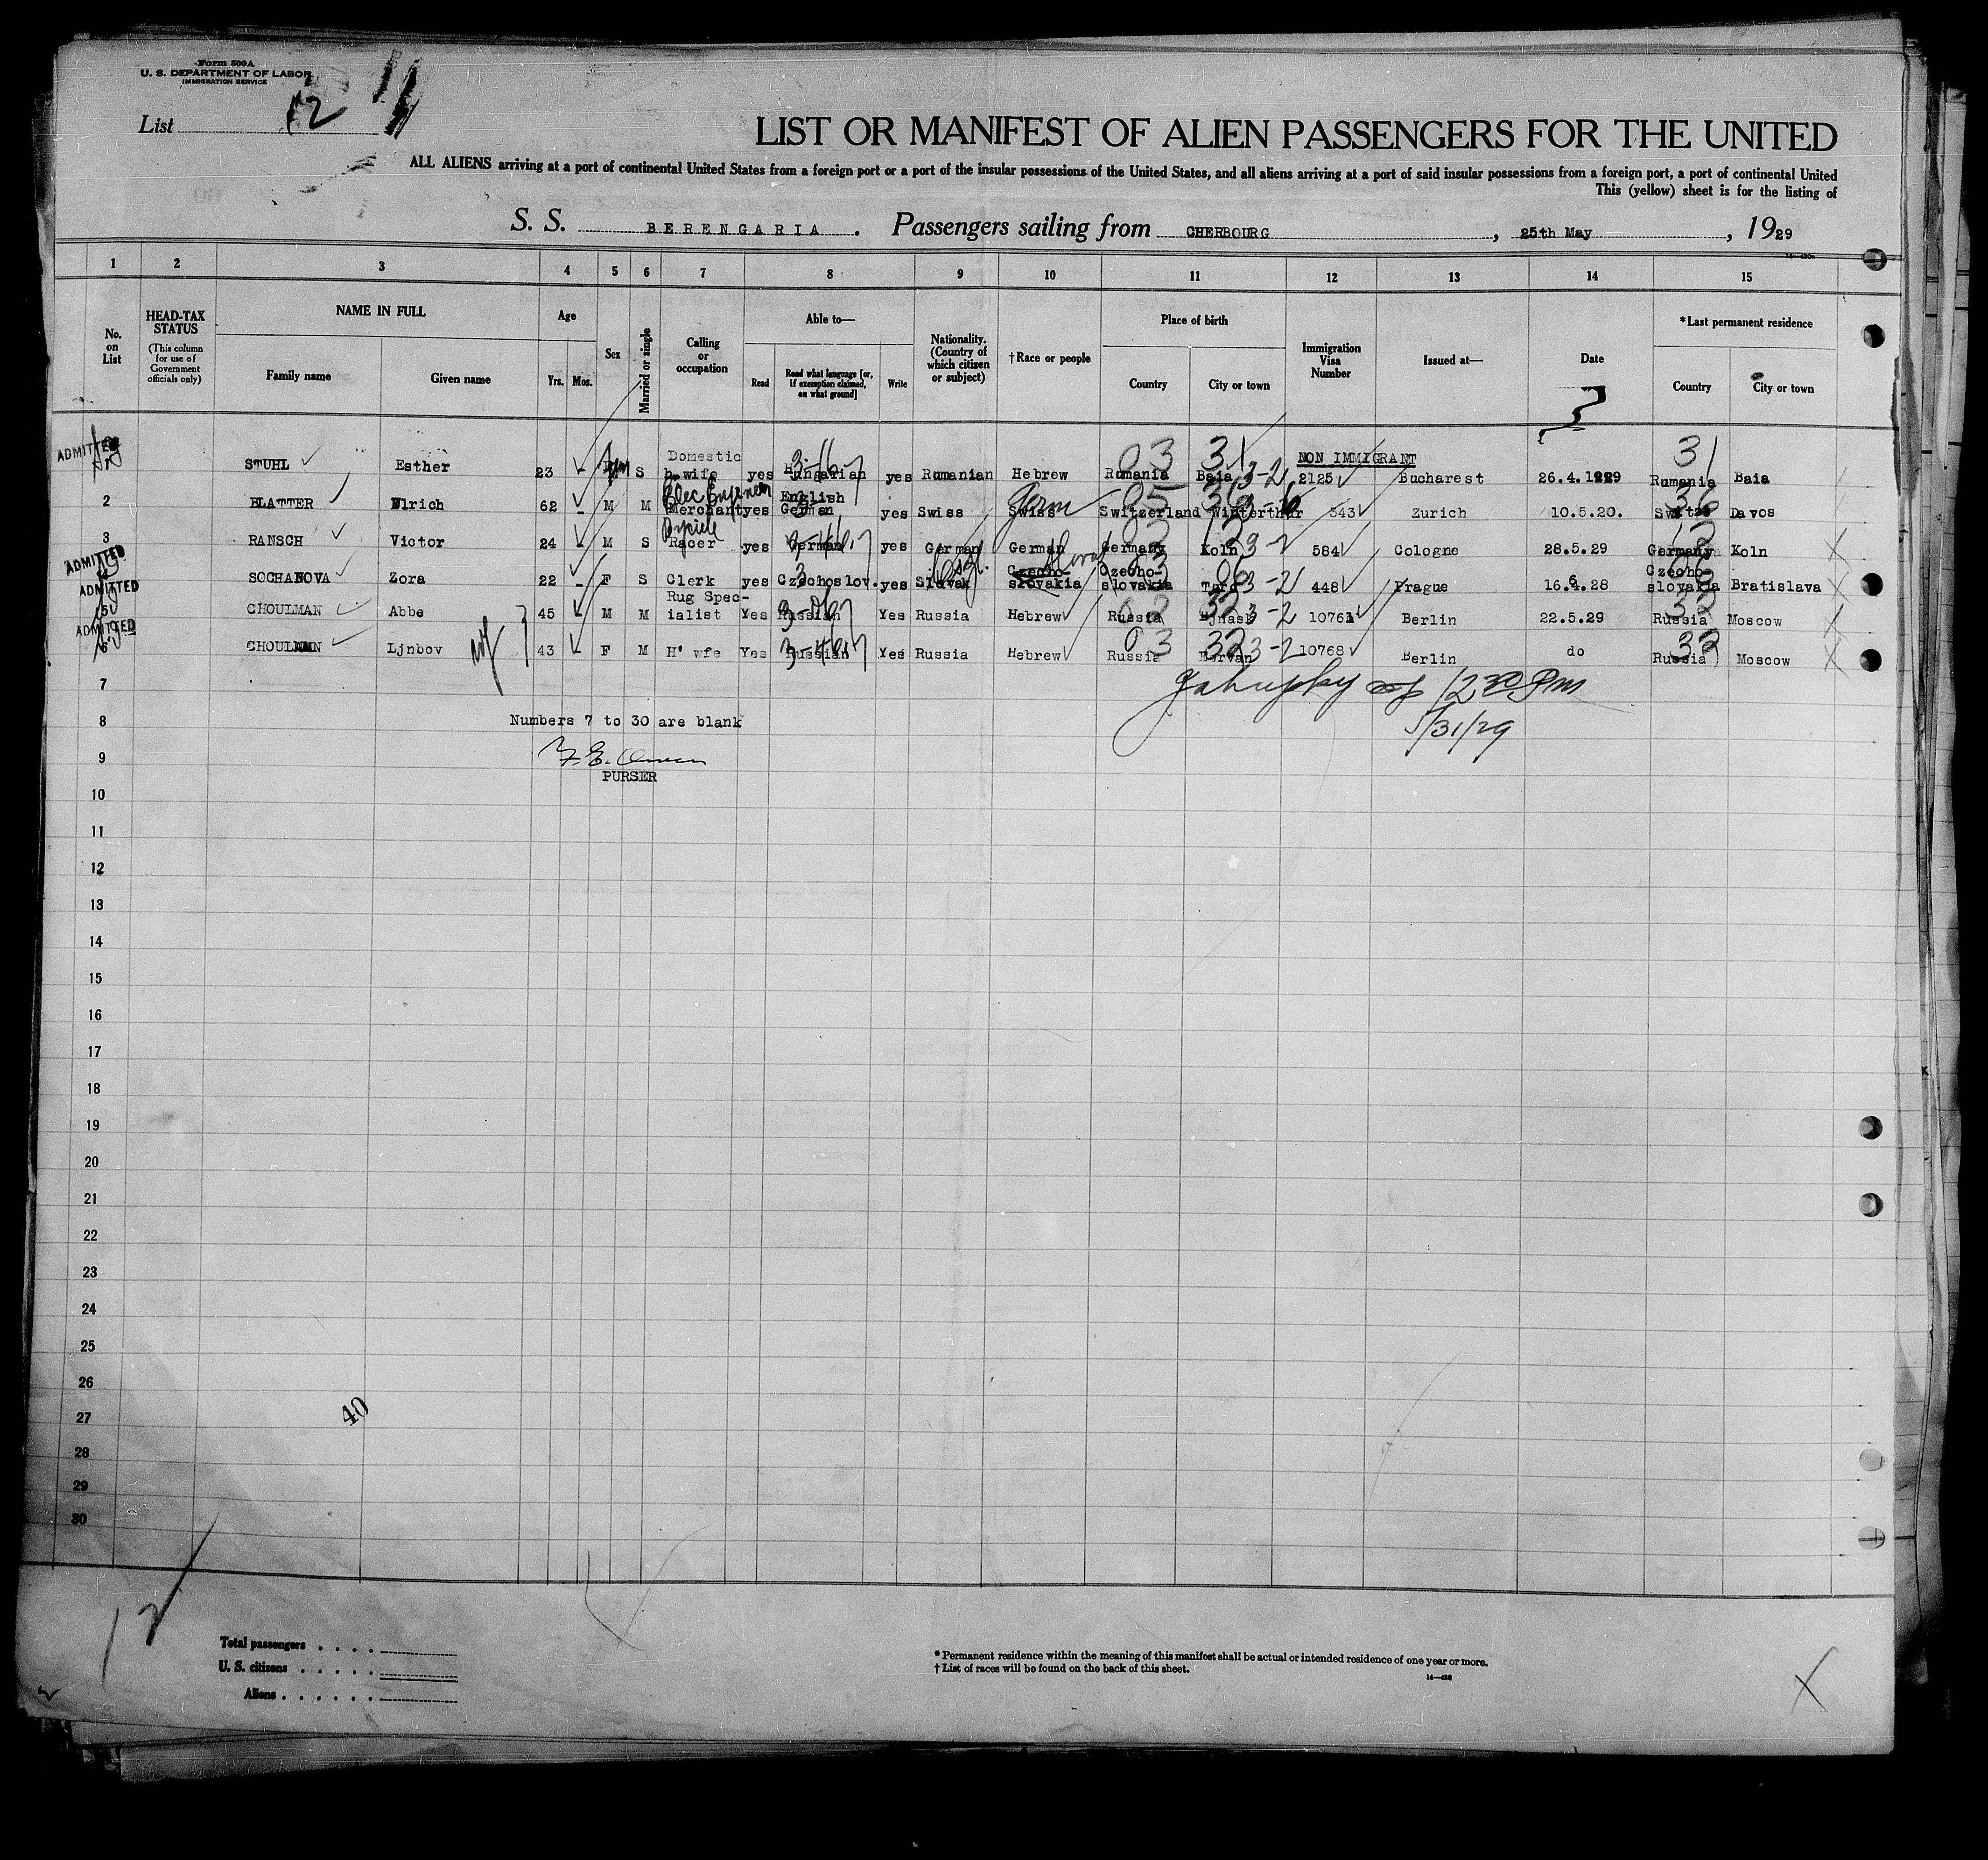 Form 500A
U. S. DEPARTMENT OF LABOR
IMMIGRATION SERVICE
List 12
LIST OR MANIFEST OF ALIEN PASSENGERS FOR THE UNITED
ALL ALIENS arriving at a port of continental United States from a foreign port or a port of the insular possessions of the United States, and all aliens arriving at a port of said insular possessions from a foreign port, a port of continental United
This (yellow) sheet is for the listing of
S. S. BERENGARIA . Passengers sailing from CHERBOURG , 25th May , 1929
1 2 3 4 5 6 7 8 9 10 11 12 13 14 15
No. on List HEAD-TAX STATUS (This column for use of Government officials only) NAME IN FULL Family name Given name Age Yrs. Mos. Sex Married or single Calling or occupation Able to— Read Read what language [or, if exemption claimed, on what ground] Write Nationality. (Country of which citizen or subject) †Race or people Place of birth Country City or town Immigration Visa Number Issued at— Date *Last permanent residence Country City or town
NON IMMIGRANT
ADMITTED STUHL Esther 23 - S Domestic h. wife yes Hungarian yes Rumanian Hebrew 03 31 Rumania Baia 3-2 2125 Bucharest 26.4.1929 31 Rumania Baia
2 BLATTER Ulrich 62 - M M Elec Engineer Merchant yes English German yes Swiss Germ Swiss 05 36 Switzerland Winterthur 343 Zurich 10.5.20. 36 Davos
3 RANSCH Victor 24 - M S Bicycle Racer yes German yes German German Germany Koln 3-2 584 Cologne 28.5.29 12 Germany Koln
ADMITTED SOCHANOVA Zora 22 - F S Clerk yes Czechoslov. yes Slovak Czecho-slovakia 03 06 Czecho-slovakia 3-2 448 Prague 16.4.28 Czecho-slovakia Bratislava
ADMITTED 5 CHOULMAN Abbe 45 - M M Rug Spec-ialist Yes Russian Yes Russia Hebrew Russia 3-2 Berlin 22.5.29 Russia Moscow
ADMITTED 6 CHOULMAN Ljnbov wf 43 - F M H' wfe Yes Russian Yes Russia Hebrew 03 32 Russia 3-2 10768 Berlin do 32 Russia Moscow
7
12 30 Pm
8 Numbers 7 to 30 are blank
5/31/29
9
PURSER
10
11
12
13
14
15
16
17
18
19
20
21
22
23
24
25
26
27
40
28
29
30
12
Total passengers . . . .
U. S. citizens . . . . .
Aliens . . . . . .
* Permanent residence within the meaning of this manifest shall be actual or intended residence of one year or more.
† List of races will be found on the back of this sheet.
X